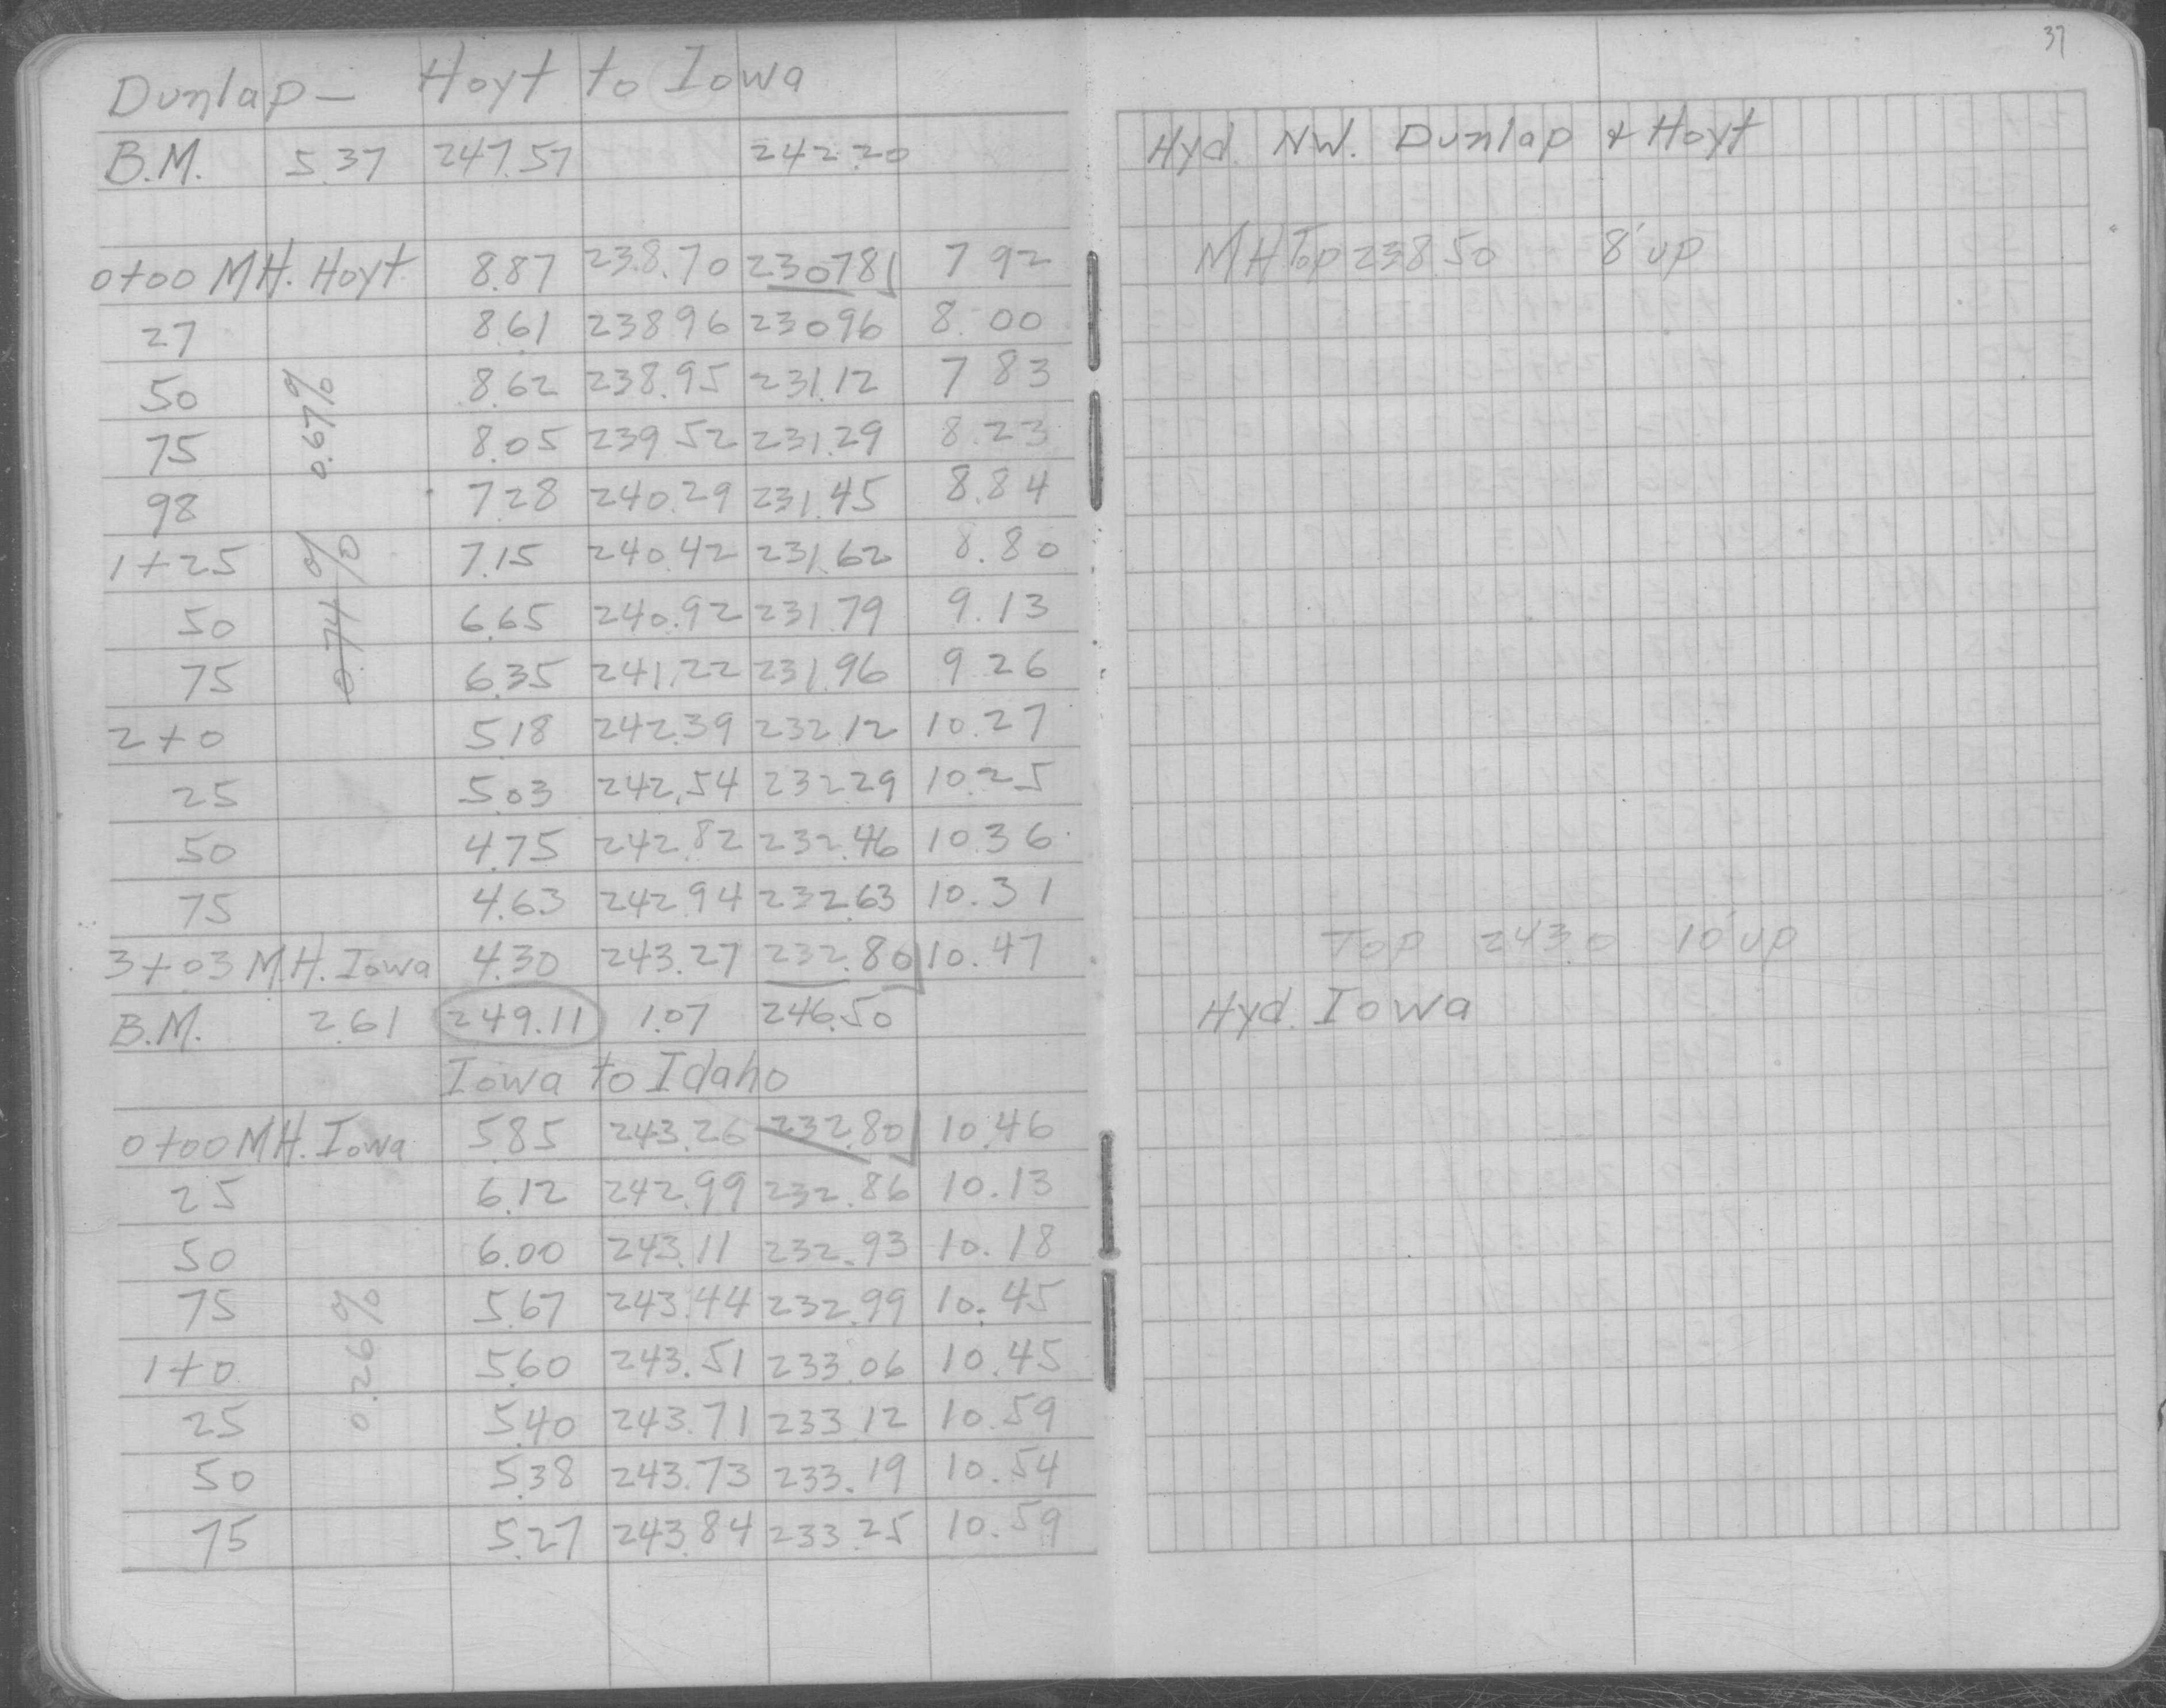 37
Dunlap - Hoyt to Iowa
B.M. 5.37 247.57 242.20
0+00 MH. Hoyt 8.87 238.70 230.78 7 92
27 8.61 238 96 230 96 8. 00
50 8.62 238.95 231.12 7 83
75 8.05 239 52 231.29 8.23
98 7.28 240.29 231.45 8.84
0.67%
1+25 7.15 240.42 231.62 8.80
50 6.65 240.92 231.79 9.13
75 6.35 241.22 231.96 9 26
0.74%
2+0 5.18 242.39 232.12 10.27
25 5.03 242.54 232.29 10.25
50 4.75 242.82 232.46 10.36
75 4.63 242.94 232.63 10.31
3+03 M.H. Iowa 4.30 243.27 232.80 10.47
B.M. 2.61 249.11 1.07 246.50
Iowa to Idaho
0+00 MH. Iowa 5.85 243.26 232.80 10.46
25 6.12 242.99 232.86 10.13
50 6.00 243.11 232.93 10.18
75 5.67 243.44 232.99 10.45
1+0 5.60 243.51 233.06 10.45
0.26%
25 5.40 243.71 233.12 10.59
50 5.38 243.73 233.19 10.54
75 5.27 243.84 233.25 10.59
Hyd. NW. Dunlap & Hoyt
MH Top 238 50 8' up
Top 243.0 10' up
Hyd. Iowa